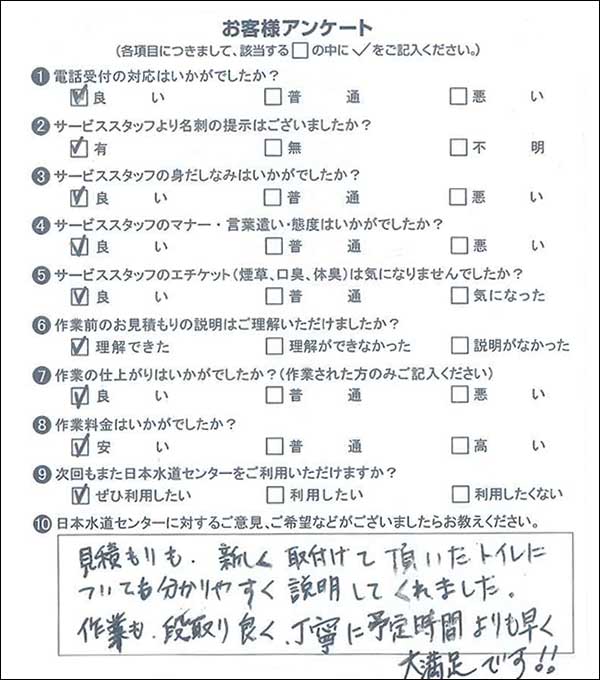 お客様アンケート
(各項目につきまして、該当する□の中に✓をご記入ください。)
❶ 電話受付の対応はいかがでしたか?
☑ 良い □ 普通 □ 悪い
❷ サービススタッフより名刺の提示はございましたか?
☑ 有 □ 無 □ 不明
❸ サービススタッフの身だしなみはいかがでしたか?
☑ 良い □ 普通 □ 悪い
❹ サービススタッフのマナー・言葉遣い・態度はいかがでしたか?
☑ 良い □ 普通 □ 悪い
❺ サービススタッフのエチケット(煙草、口臭、体臭)は気になりませんでしたか?
☑ 良い □ 普通 □ 気になった
❻ 作業前のお見積もりの説明はご理解いただけましたか?
☑ 理解できた □ 理解ができなかった □ 説明がなかった
❼ 作業の仕上がりはいかがでしたか?(作業された方のみご記入ください)
☑ 良い □ 普通 □ 悪い
❽ 作業料金はいかがでしたか?
☑ 安い □ 普通 □ 高い
❾ 次回もまた日本水道センターをご利用いただけますか?
☑ ぜひ利用したい □ 利用したい □ 利用したくない
❿ 日本水道センターに対するご意見、ご希望などがございましたらお教えください。
見積もりも、新しく取付けて頂いたトイレに
ついても分かりやすく説明してくれました。
作業も、段取り良く、丁寧に予定時間よりも早く
大満足です!!